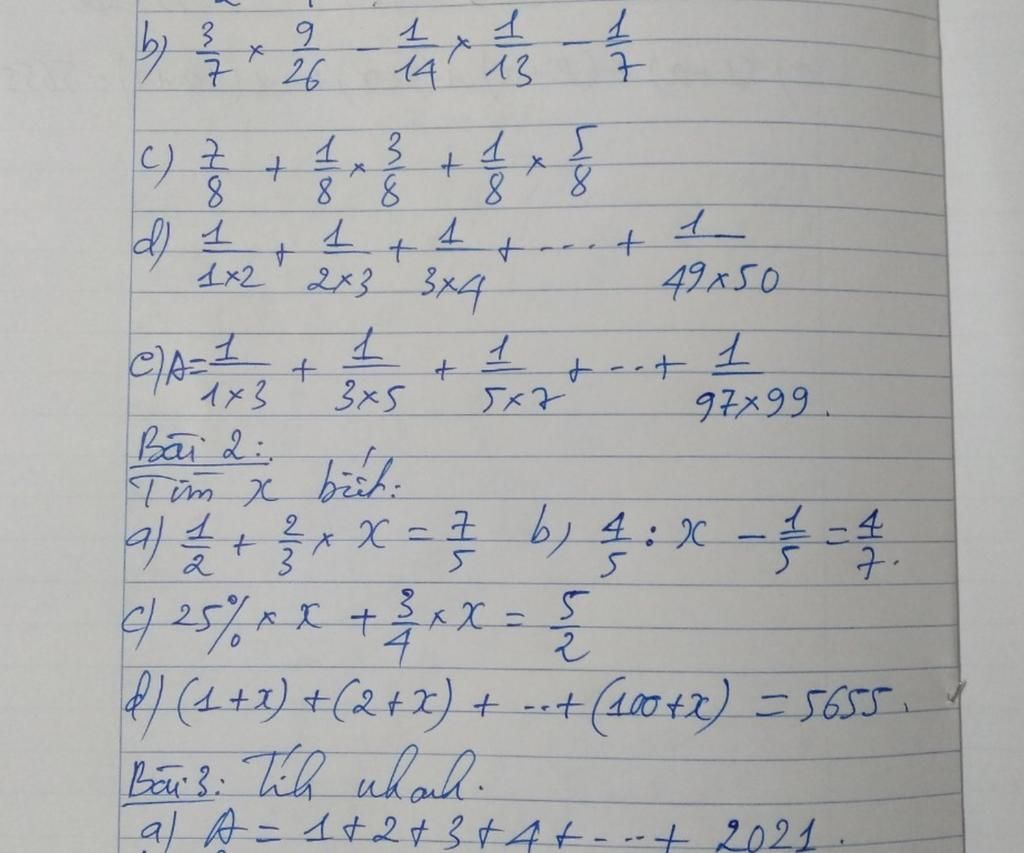 b) 3/7 × 9/26 - 1/14 × 1/13 - 1/7
c) 7/8 + 1/8 × 3/8 + 1/8 × 5/8
d) 1/1×2 + 1/2×3 + 1/3×4 + .... + 1/49×50
e) A = 1/1×3 + 1/3×5 + 1/5×7 + ... + 1/97×99.
Bài 2:
Tìm x biết:
a) 1/2 + 2/3 × x = 7/5 b) 4/5 : x - 1/5 = 4/7.
c) 25% × x + 3/4 × x = 5/2
d) (1+x) + (2+x) + ... + (100+x) = 5655.
Bài 3: Tính nhanh.
a) A = 1+2+3+4+ ... + 2021.